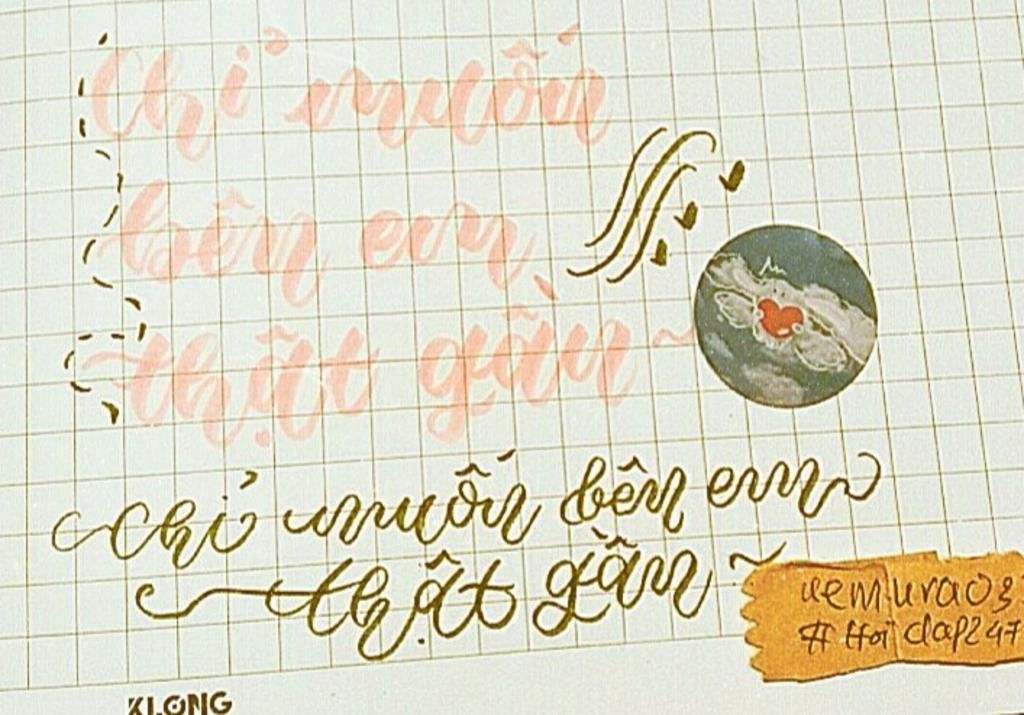 Chỉ muốn
bên em
thật gần ~
chỉ muốn bên em
thật gần ~
# Hoidap247
KLONG